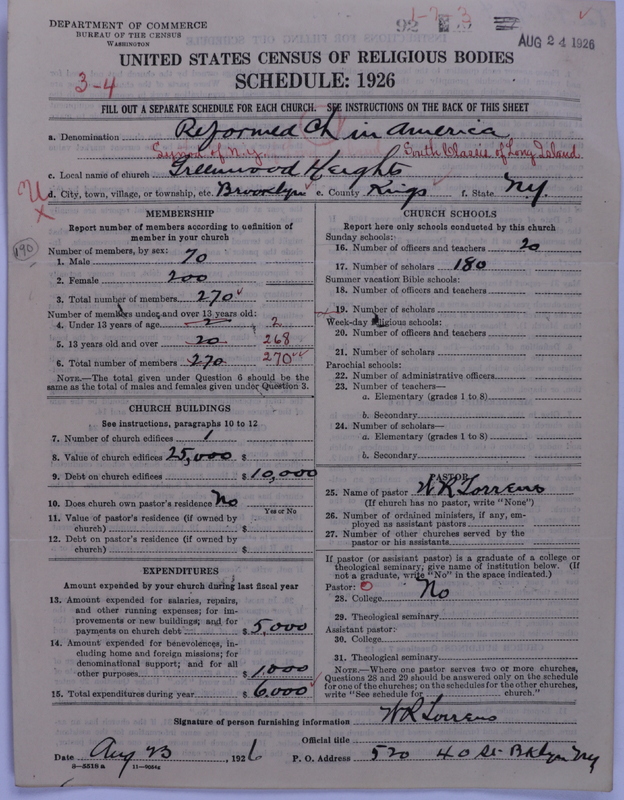 DEPARTMENT OF COMMERCE
BUREAU OF THE CENSUS
WASHINGTON
92 1-7-3
AUG 24 1926
UNITED STATES CENSUS OF RELIGIOUS BODIES
SCHEDULE: 1926
3-4
FILL OUT A SEPARATE SCHEDULE FOR EACH CHURCH. SEE INSTRUCTIONS ON THE BACK OF THIS SHEET
a. Denomination Reformed Ch in America
Synod of N.Y. South Classis of Long Island
c. Local name of church Greenwood Heights
d. City, town, village, or township, etc. Brooklyn e. County Kings f. State N.Y.
190
MEMBERSHIP
Report number of members according to definition of member in your church
Number of members, by sex:
1. Male 70
2. Female 200
3. Total number of members 270
Number of members under and over 13 years old:
4. Under 13 years of age 2 2
5. 13 years old and over 20 268
6. Total number of members 270 270
NOTE.—The total given under Question 6 should be the same as the total of males and females given under Question 3.
CHURCH BUILDINGS
See instructions, paragraphs 10 to 12
7. Number of church edifices 1
8. Value of church edifices 25,000 $
9. Debt on church edifices $ 10,000
10. Does church own pastor's residence No
Yes or No
11. Value of pastor's residence (if owned by church) $
12. Debt on pastor's residence (if owned by church) $
EXPENDITURES
Amount expended by your church during last fiscal year
13. Amount expended for salaries, repairs, and other running expenses; for improvements or new buildings; and for payments on church debt $ 5,000
14. Amount expended for benevolences, including home and foreign missions; for denominational support; and for all other purposes $ 1,000
15. Total expenditures during year $ 6,000
CHURCH SCHOOLS
Report here only schools conducted by this church
Sunday schools:
16. Number of officers and teachers 20
17. Number of scholars 180
Summer vacation Bible schools:
18. Number of officers and teachers
19. Number of scholars
Week-day religious schools:
20. Number of officers and teachers
21. Number of scholars
Parochial schools:
22. Number of administrative officers
23. Number of teachers—
a. Elementary (grades 1 to 8)
b. Secondary
24. Number of scholars—
a. Elementary (grades 1 to 8)
b. Secondary
PASTOR
25. Name of pastor W R Torrens
(If church has no pastor, write "None")
26. Number of ordained ministers, if any, employed as assistant pastors
27. Number of other churches served by the pastor or his assistants
If pastor (or assistant pastor) is a graduate of a college or theological seminary, give name of institution below. (If not a graduate, write "No" in the space indicated.)
Pastor: 0
28. College No
29. Theological seminary
Assistant pastor:
30. College
31. Theological seminary
NOTE.—Where one pastor serves two or more churches, Questions 28 and 29 should be answered only on the schedule for one of the churches; on the schedules for the other churches, write "See schedule for church."
Signature of person furnishing information W R Torrens
Official title
Date Aug 23, 1926 P. O. Address 520 40 St Bklyn NY
8—5518 a 11—9054a